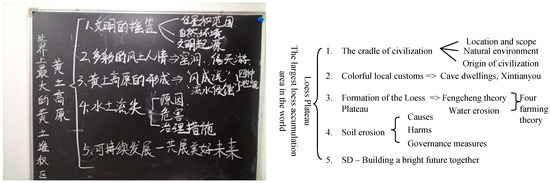 世界上最大的黄土堆积区
黄土高原
1.文明的摇篮
位置和范围
自然环境
文明起源
2.多彩的风土人情⇒窑洞、信天游
3.黄土高原的形成⇒"风成说"
4.水土流失
原因
危害
治理措施
5.可持续发展—共展美好未来
The largest loess accumulation
area in the world
Loess Plateau
1. The cradle of civilization
Location and scope
Natural environment
Origin of civilization
2. Colorful local customs => Cave dwellings, Xintianyou
3. Formation of the Loess => Fengcheng theory
Plateau Water erosion
Four
farming theory
4. Soil erosion
Causes
Harms
Governance measures
5. SD – Building a bright future together